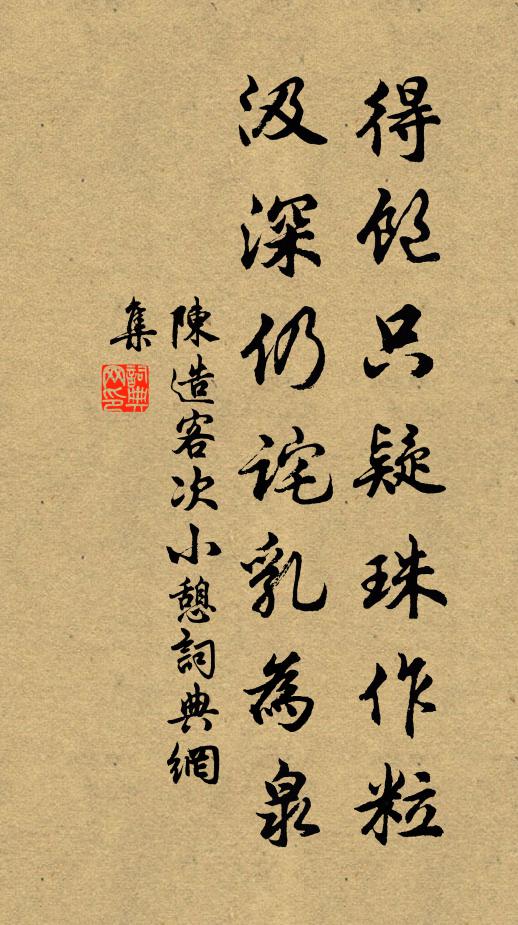 得飽只疑珠作粒
汲深仍詫乳為泉
陳造客次小憩詞典網
集
詞典
网印